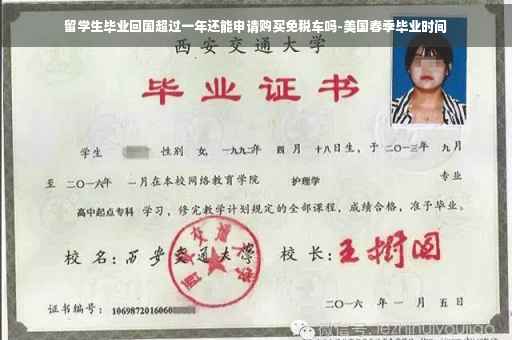 留学生毕业回国超过一年还能申请购买免税车吗-美国春季毕业时间
西安交通大学
毕业证书
学生 性别 女，一九九二年 四 月 十八日生，于 二〇一三年 九月
至 二〇一六年 一月在本校网络教育学院 护理学 专业
高中起点专科 学习，修完教学计划规定的全部课程，成绩合格，准予毕业。
校 名：西安交通大学 校 长：王树国
证书编号：1069872016060
二〇一六 年 一 月 五 日
微信号: jiezhihuiyoujiao